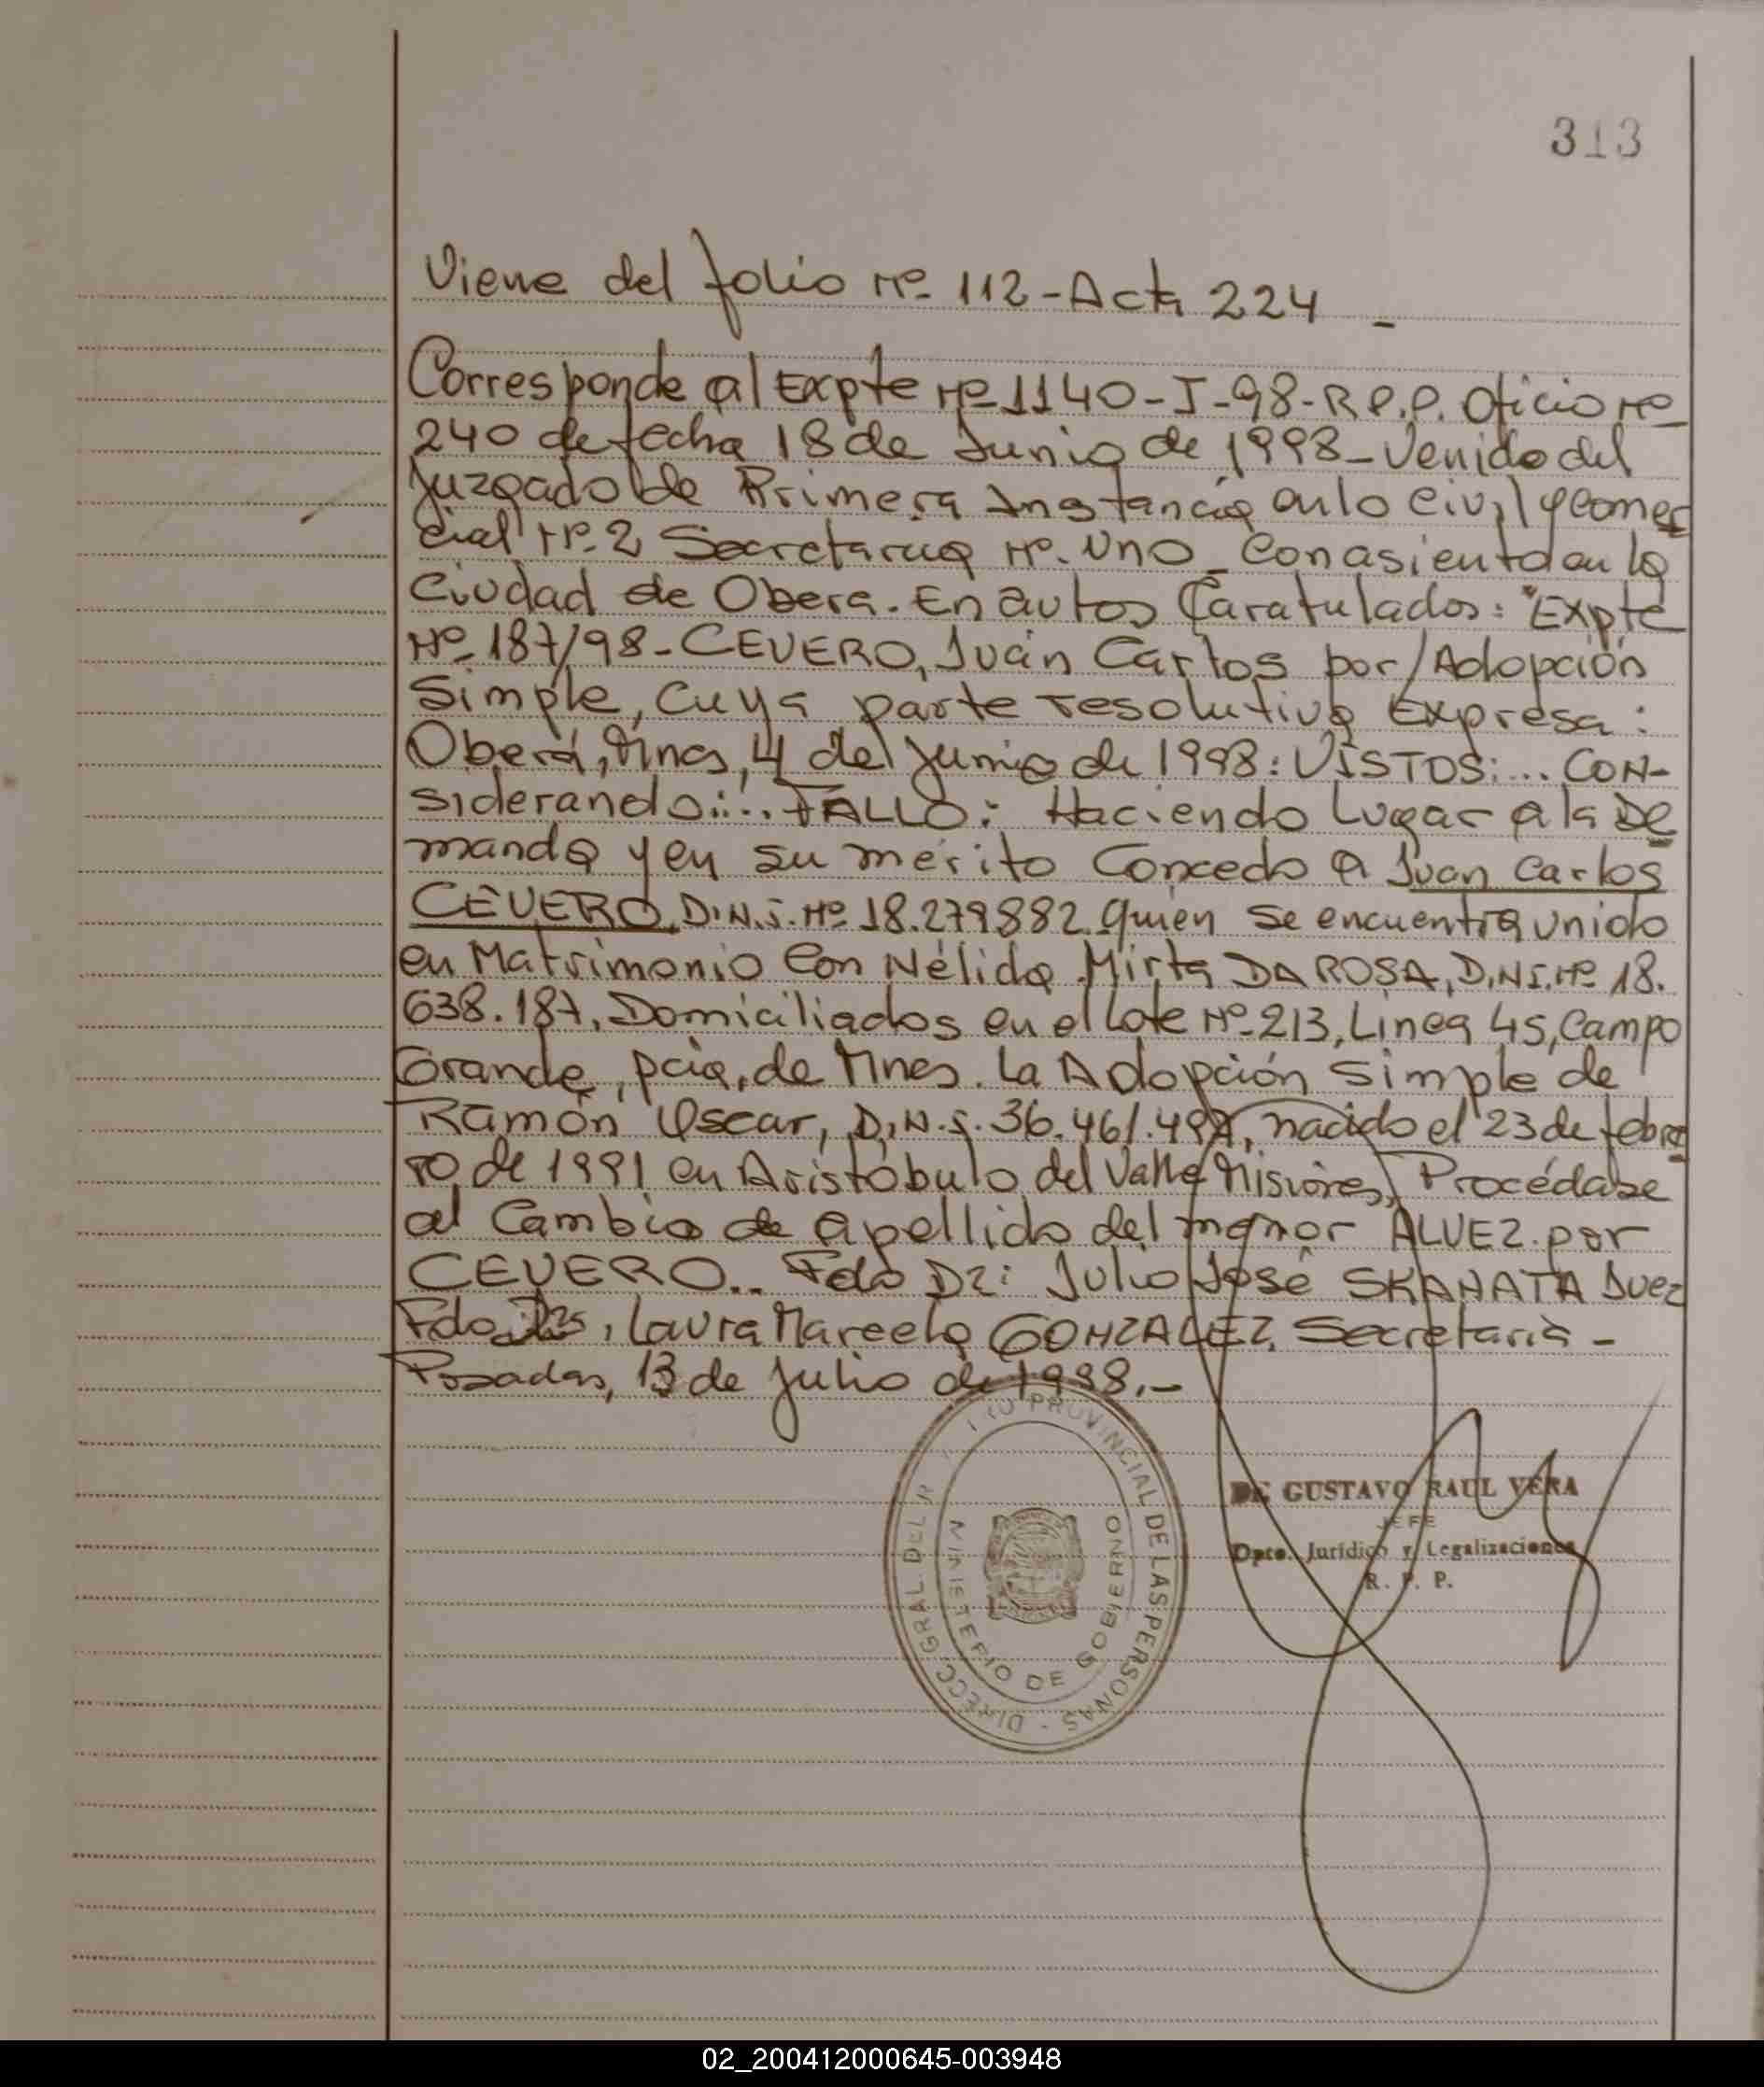 313
Viene del folio Nº 112 - Acta 224 -
Corresponde al Expte Nº 1140-J-98-R.P.P. Oficio Nº
240 de fecha 18 de Junio de 1998 - Venido del
Juzgado de Primera Instancia en lo Civil y Comer
cial Nº 2 Secretaria Nº Uno - Con asiento en la
Ciudad de Obera. En autos Caratulados: "Expte
Nº 187/98 - CEVERO, Juan Carlos por/Adopción
Simple, cuya parte resolutiva Expresa:
Oberá, Mnes, 4 de Junio de 1998: VISTOS:... CON-
siderando:... FALLO: Haciendo Lugar a la De
manda y en su mérito Concedo a Juan Carlos
CEVERO, D.N.I. Nº 18.279.882. quien se encuentra unido
en Matrimonio Con Nélida Mirta DA ROSA, D.N.I. Nº 18.
638.187, Domiciliados en el Lote Nº 213, Linea 45, Campo
Grande, pcia, de Mnes. La Adopción Simple de
Ramón Oscar, D.N.I. 36.461. nacido el 23 de febre
ro de 1991 en Aristóbulo del Valle Misiones, Procédase
al Cambio de apellido del menor ALVEZ por
CEVERO.. Fdo Dr: Julio José SKANATA Juez
Fdo Dra, Laura Marcela GONZALEZ, Secretaria -
Posadas, 13 de Julio de 1998.-
DIRECC. GRAL. DEL PROVINCIAL DE LAS PERSONAS -
MINISTERIO DE GOBIERNO
GUSTAVO RAUL VERA
JEFE
Dpto. Jurídico y Legalizaciones
R. P. P.
02_200412000645-003948